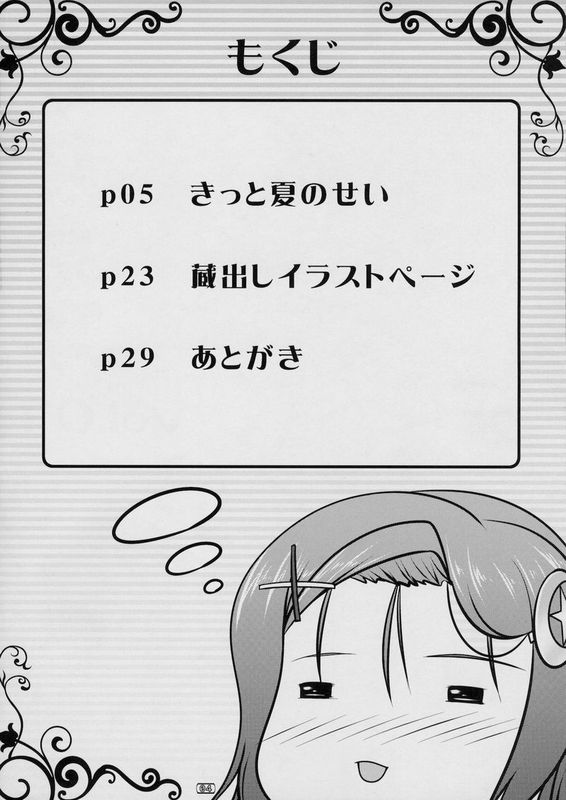 もくじ
p05 きっと夏のせい
p23 蔵出しイラストページ
p29 あとがき